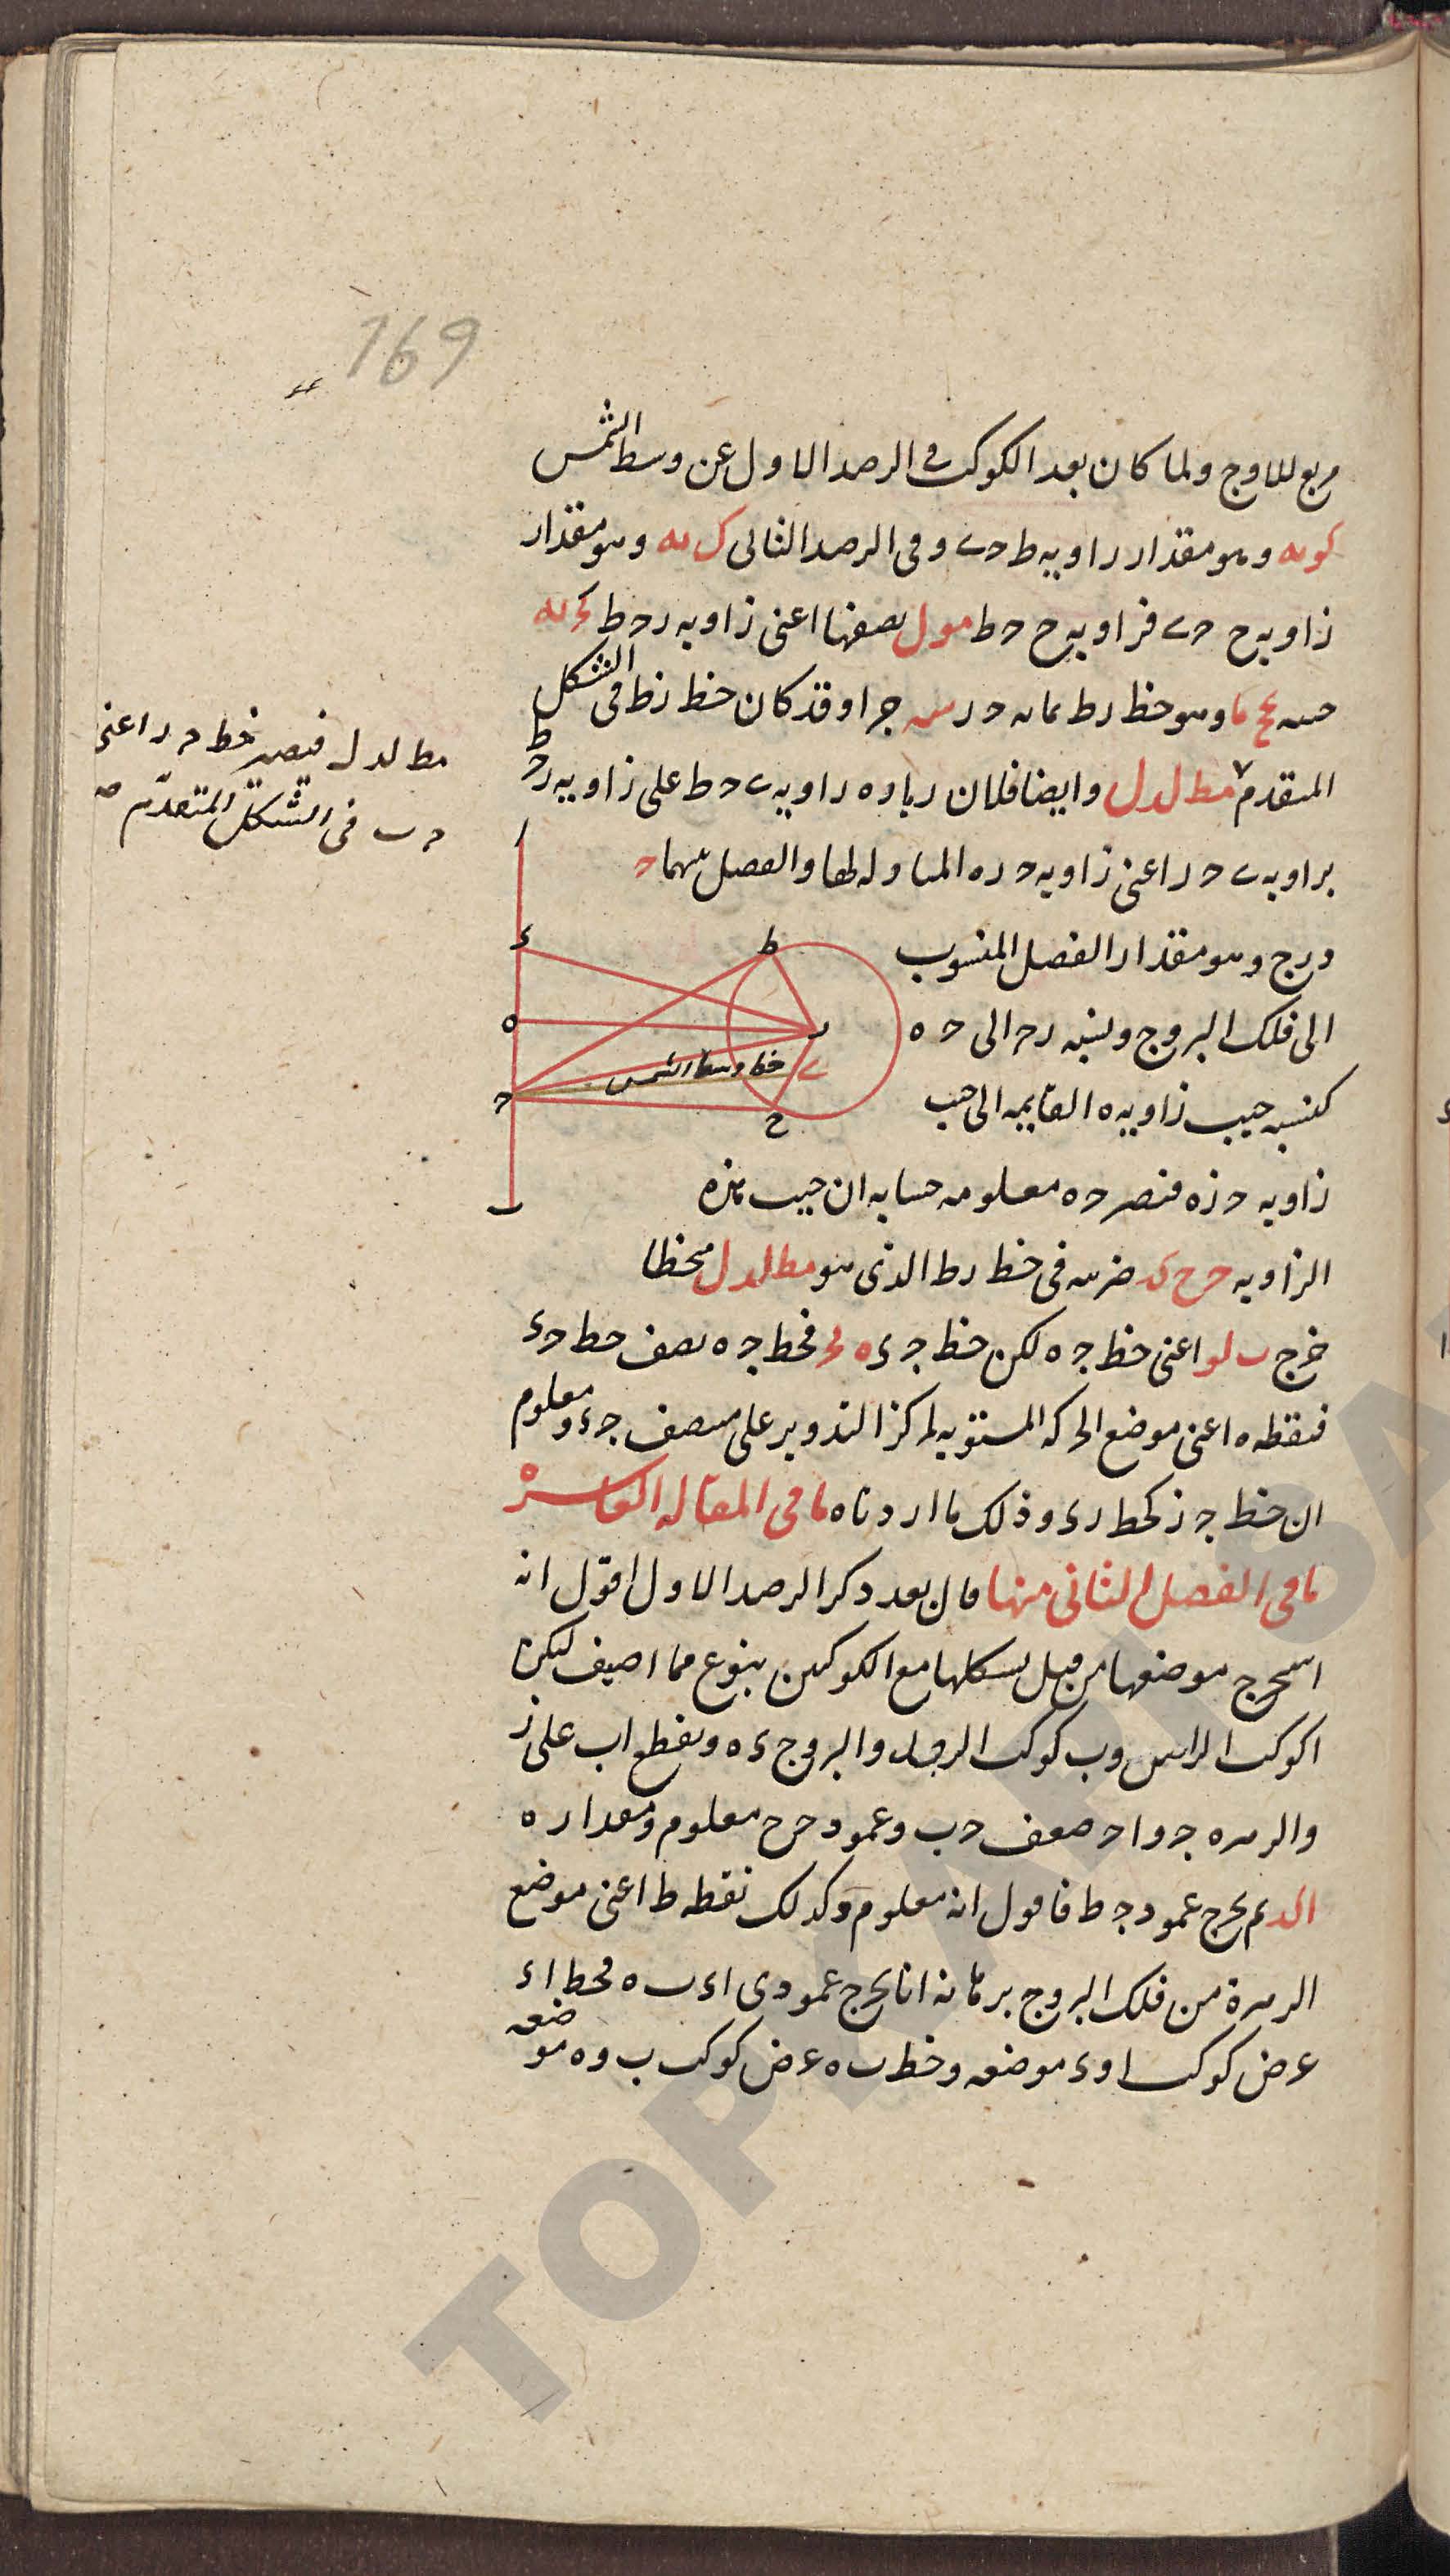 169
مربع للاوج ولما كان بعد الكوكب فى الرصد الاول عن وسط الشمس
كو ىه وهو مقدار زاويه ط ح ى وفى الرصد الثانى ك ىه وهو مقدار
زاويه ح ح ى فزاويه ح ح ط مو ل نصفها اعنى زاويه ر ح ط كج ىه
وهو خط رط بمابه ح ر جزا وقد كان خط زط فى الشكل
المتقدم مط لد ل وايضا فلان زياده زاويه ى ح ط على زاويه ر ح ط
بزاويه ى ح ر اعنى زاويه ح ر ه المباوله لها والفصل بينهما ح
درج وهو مقدار الفصل المنسوب
الى فلك البروج ونسبه ر ح الى ح ه
كنسبه جيب زاويه ه القايمه الى جيب
زاويه ح ز ه فتصير ح ه معلومه حسابه ان جيب هذه
الزاويه ضربه فى خط رط الذى هو مط لد ل منحطا
خرج ب لو اعنى خط ج ه لكن خط ج ى فخط ج ه نصف خط ح ء
فنقطه ه اعنى موضع الحركه المستويه لمركز التدوير على منتصف ج ء ومعلوم
ان خط ج ز كخط ر ء وذلك ما اردناه ما فى المقاله العاشره
ما فى الفصل الثانى منها قال بعد ذكر الرصد الاول اقول انه
استخرج موضعها من قبل تشكلها مع الكوكبين بنوع مما اصيف ليكن
ا كوكب الراس وب كوكب الرجل والبروج ء ه ونقطع اب على ز
والزهره ج و ا ح ضعف ح ب وعمود ح ر ح معلوم ومقداره
الد ثم نخرج عمود ج ط فاقول انه معلوم وكذلك نقطه ط اعنى موضع
الزهرة من فلك البروج برهانه انا نخرج عمودى ا ء ب ه فخط ا ء
عرض كوكب ا و ء موضعه وخط ب ه عرض كوكب ب و ه موضعه
مط لد ل فيصير خط ح ر اعنى
ح ب فى الشكل المتقدم
ء
ه
ح
ب
ط
ر
ى
ح
خط وسط الشمس
TOPKAPI SA